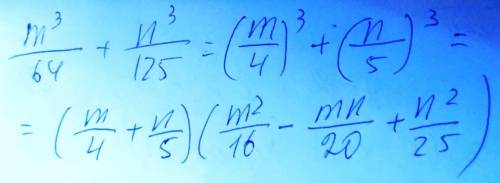 m³/64 + n³/125 = (m/4)³ + (n/5)³ =
= (m/4 + n/5)(m²/16 - mn/20 + n²/25)